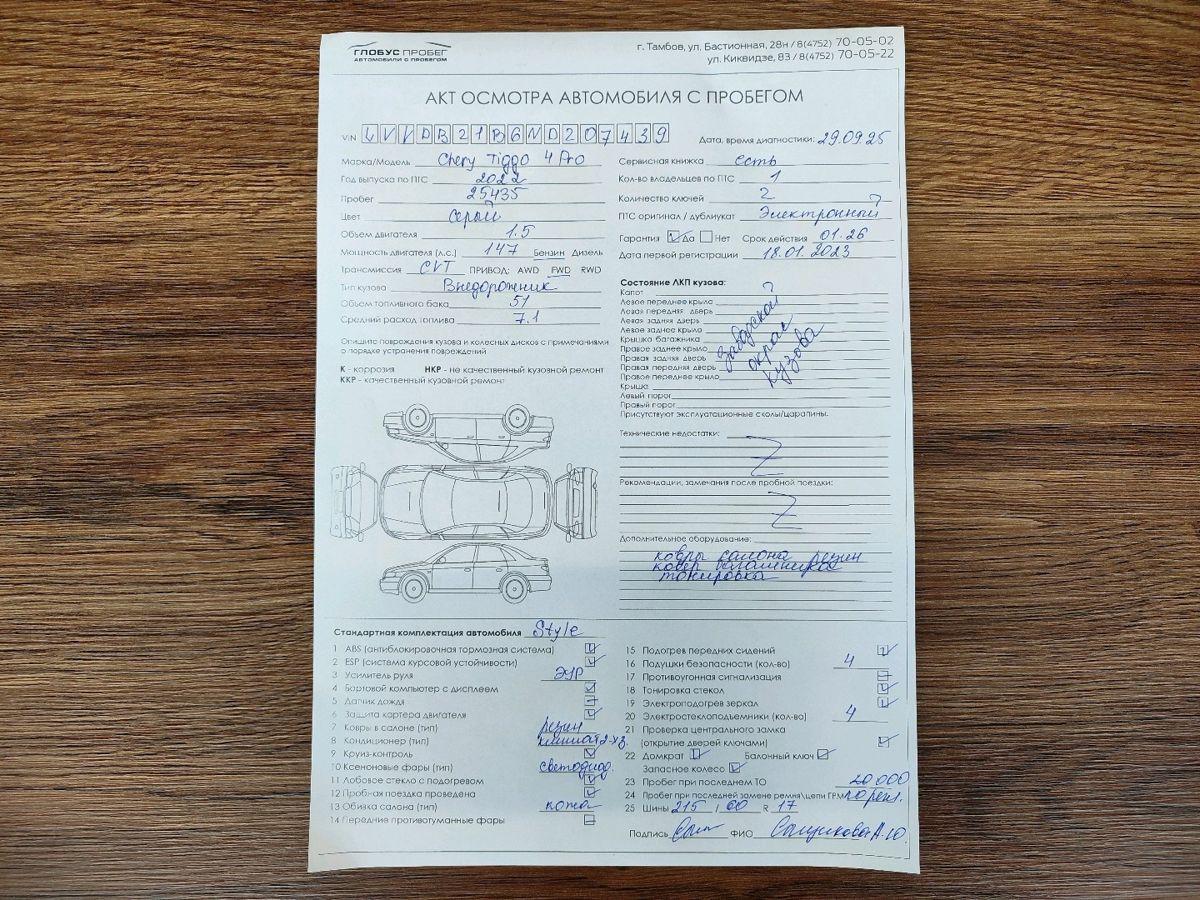 ГЛОБУС ПРОБЕГ
АВТОМОБИЛИ С ПРОБЕГОМ
г. Тамбов, ул. Бастионная, 28н / 8(4752) 70-05-02
ул. Киквидзе, 83 / 8(4752) 70-05-22
АКТ ОСМОТРА АВТОМОБИЛЯ С ПРОБЕГОМ
VIN LVVDB21B6ND207439
Дата, время диагностики: 29.09.25
Марка/Модель Chery Tiggo 4 Pro
Год выпуска по ПТС 2022
Пробег 25435
Цвет Серый
Объем двигателя 1.5
Мощность двигателя (л.с.) 147 Бензин Дизель
Трансмиссия CVT ПРИВОД: AWD FWD RWD
Тип кузова Внедорожник
Объем топливного бака 51
Средний расход топлива 7.1
Опишите повреждения кузова и колесных дисков с примечаниями
о порядке устранения повреждений
К - коррозия НКР - не качественный кузовной ремонт
ККР - качественный кузовной ремонт
Сервисная книжка есть
Кол-во владельцев по ПТС 1
Количество ключей 2
ПТС оригинал / дубликат Электронный
Гарантия Да Нет Срок действия 01.26
Дата первой регистрации 18.01.2023
Состояние ЛКП кузова:
Капот
Левое переднее крыло
Левая передняя дверь
Левая задняя дверь
Левое заднее крыло
Крышка багажника
Правое заднее крыло
Правая задняя дверь
Правая передняя дверь
Правое переднее крыло
Крыша
Левый порог
Правый порог
Заводской
окрас
кузова
Присутствуют эксплуатационные сколы/царапины.
Технические недостатки:
Рекомендации, замечания после пробной поездки:
Дополнительное оборудование:
ковры салона резин
ковер багажника
тонировка
Стандартная комплектация автомобиля Style
1 ABS (антиблокировочная тормозная система)
2 ESP (система курсовой устойчивости)
3 Усилитель руля ЭУР
4 Бортовой компьютер с дисплеем
5 Датчик дождя
6 Защита картера двигателя
7 Ковры в салоне (тип) резин
8 Кондиционер (тип) климат 2-х з.
9 Круиз-контроль
10 Ксеноновые фары (тип) светодиод.
11 Лобовое стекло с подогревом
12 Пробная поездка проведена
13 Обивка салона (тип) кожа
14 Передние противотуманные фары
15 Подогрев передних сидений
16 Подушки безопасности (кол-во) 4
17 Противоугонная сигнализация
18 Тонировка стекол
19 Электроподогрев зеркал
20 Электростеклоподъемники (кол-во) 4
21 Проверка центрального замка
(открытие дверей ключами)
22 Домкрат Балонный ключ
Запасное колесо
23 Пробег при последнем ТО 20 000
24 Пробег при последней замене ремня\цепи ГРМ по рекл.
25 Шины 215 / 60 R 17
Подпись ФИО